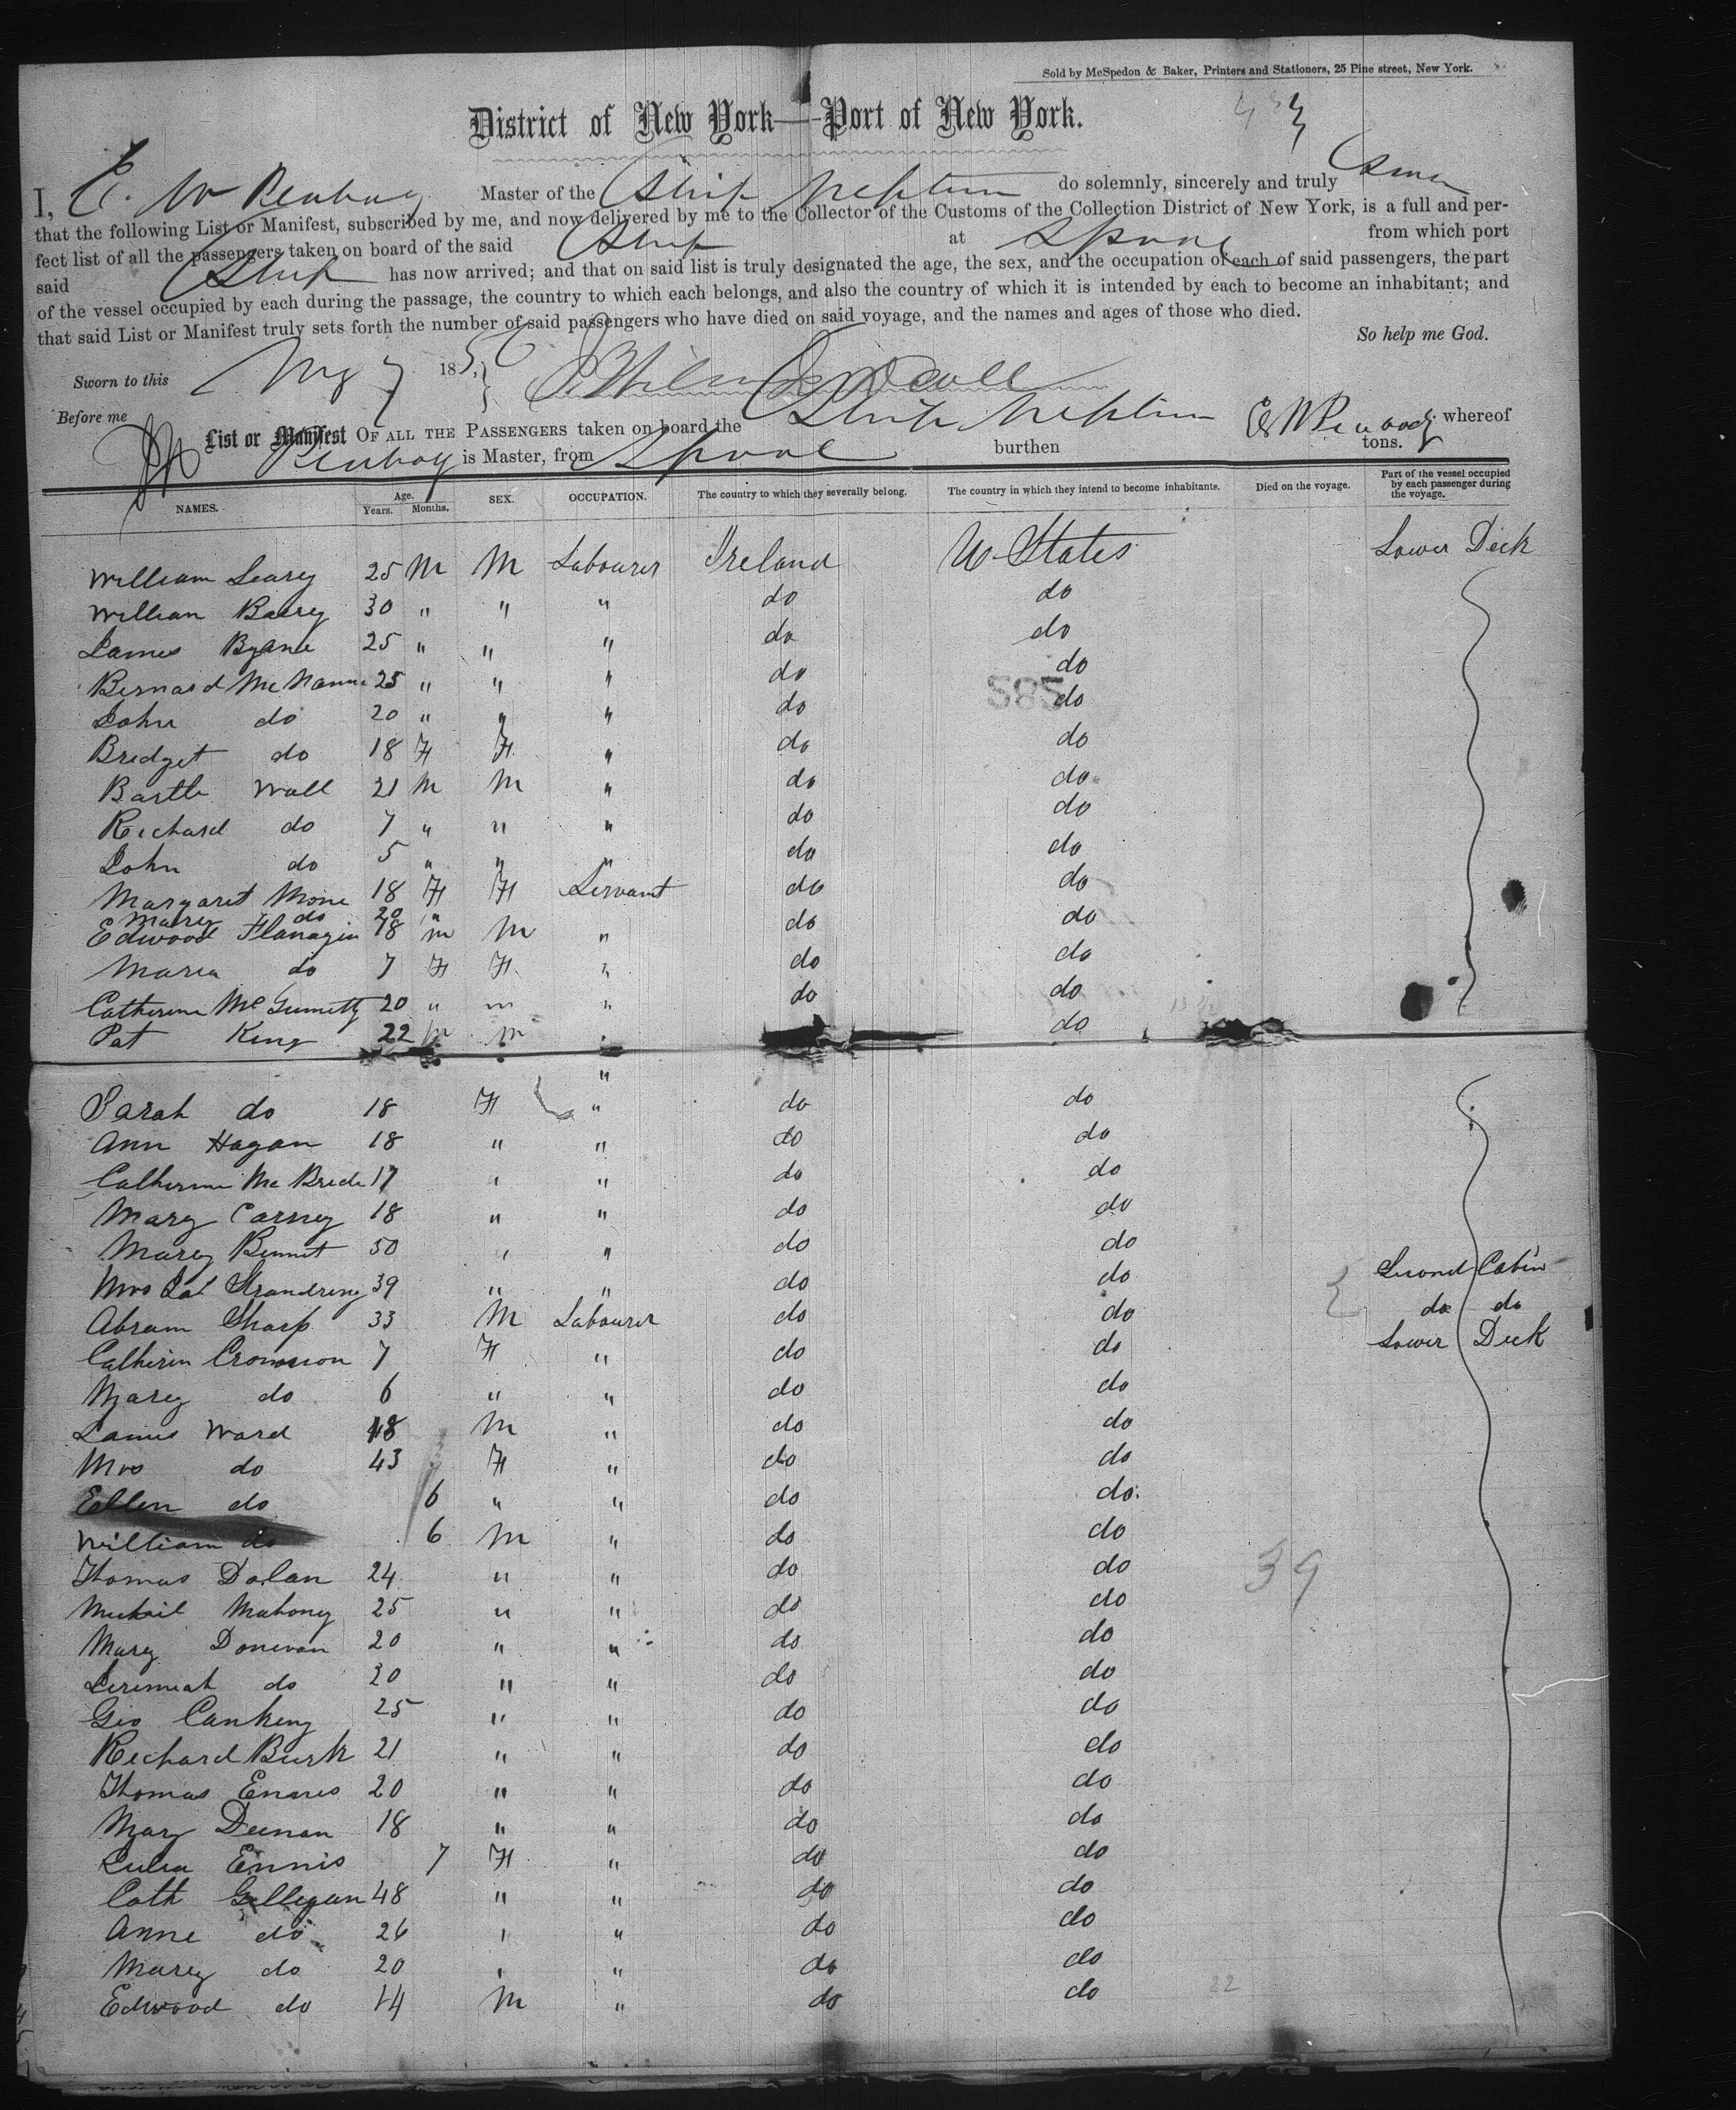 Sold by McSpedon & Baker, Printers and Stationers, 25 Pine street, New York.
District of New York—Port of New York.
I, E. W Peabody Master of the Ship Neptune do solemnly, sincerely and truly
that the following List or Manifest, subscribed by me, and now delivered by me to the Collector of the Customs of the Collection District of New York, is a full and per-
fect list of all the passengers taken on board of the said Ship at Lpool from which port
said Ship has now arrived; and that on said list is truly designated the age, the sex, and the occupation of each of said passengers, the part
of the vessel occupied by each during the passage, the country to which each belongs, and also the country of which it is intended by each to become an inhabitant; and
that said List or Manifest truly sets forth the number of said passengers who have died on said voyage, and the names and ages of those who died.
So help me God.
Sworn to this 7 1856
Before me
List or Manifest OF ALL THE PASSENGERS taken on board the Ship Neptune whereof
E W Peabody
Peabody is Master, from Lpool burthen tons.
NAMES. Age. Years. Months. SEX. OCCUPATION. The country to which they severally belong. The country in which they intend to become inhabitants. Died on the voyage. Part of the vessel occupied by each passenger during the voyage.
William Leary 25 M M Labourer Ireland U States Lower Deck
William Barry 30 " " " do do
James Byrne 25 " " " do do
Bernard McNanne 25 " " " do do
585
John do 20 " " " do do
Bridget do 18 F F " do do
Bartle Wall 21 M M " do do
Richard do 7 " " " do do
John do 5 " " " do do
Margaret Mone 18 F F Servant do do
Marey do 20 "
Edwood Flanagin 18 m M " do do
Maria do 7 F F " do do
Catherine Mc 20 " m " do do
Pat King 22 M m " do
"
Sarah do 18 F " do do
Ann Hagan 18 " " do do
Catherine Mc Bride 17 " " do do
Mary Carney 18 " " do do
Marey Bennet 50 " " do do
Mrs 39 " " do do Second Cabin
Abram Sharp 33 M Labourer do do do do
Catherin 7 F " do do Lower Deck
Marey do 6 " " do do
James Ward 48 M " do do
Mrs do 43 F " do do
Ellen do 6 " " do do
William do 6 M " do do
Thomas Dolan 24 " " do do 39
Michail Mahony 25 " " do do
Marey Donevan 20 " " do do
Jeremiah do 20 " " do do
Geo 25 " " do do
Richard Burk 21 " " do do
Thomas Ennes 20 " " do do
Mary Deenan 18 " " do do
Julia Ennis 7 F " do do
Cath Gilligan 48 " " do do
Anne do 26 " " do do
Marey do 20 " " do do
Edwood do 14 M " do do 22